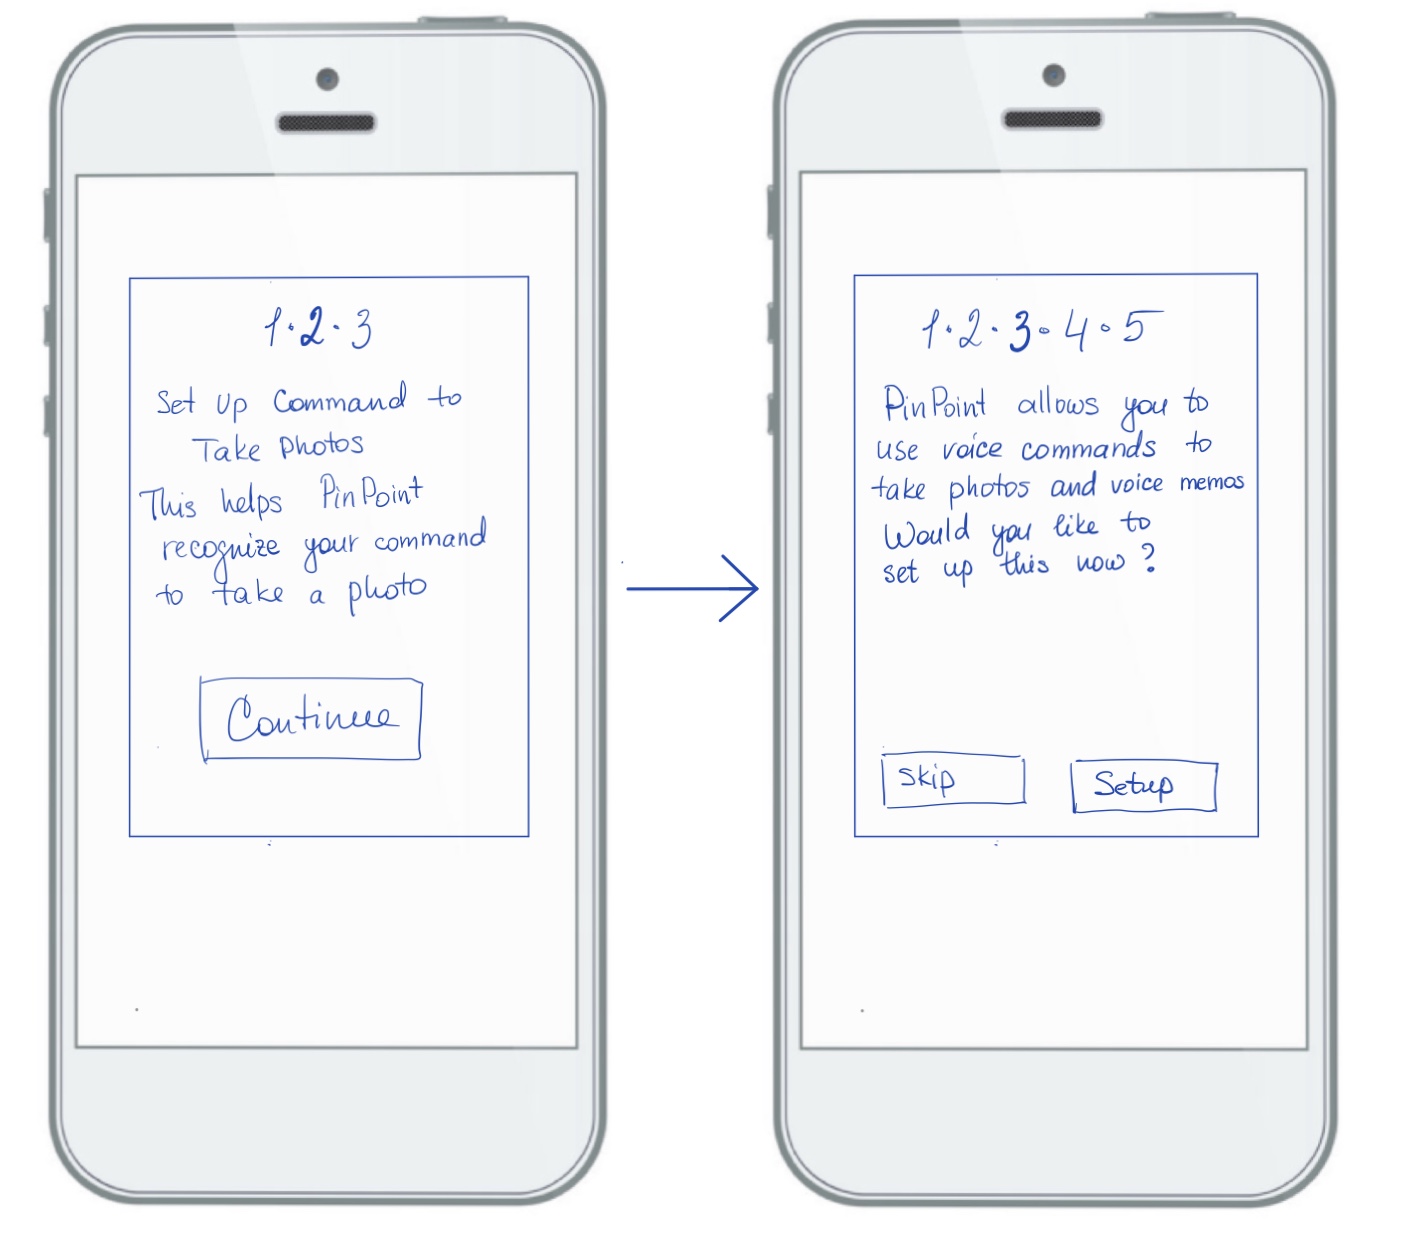 1·2·3
Set Up Command to
Take Photos
This helps PinPoint
recognize your command
to take a photo
Continue
1·2·3·4·5
PinPoint allows you to
use voice commands to
take photos and voice memos
Would you like to
set up this now?
Skip
Setup